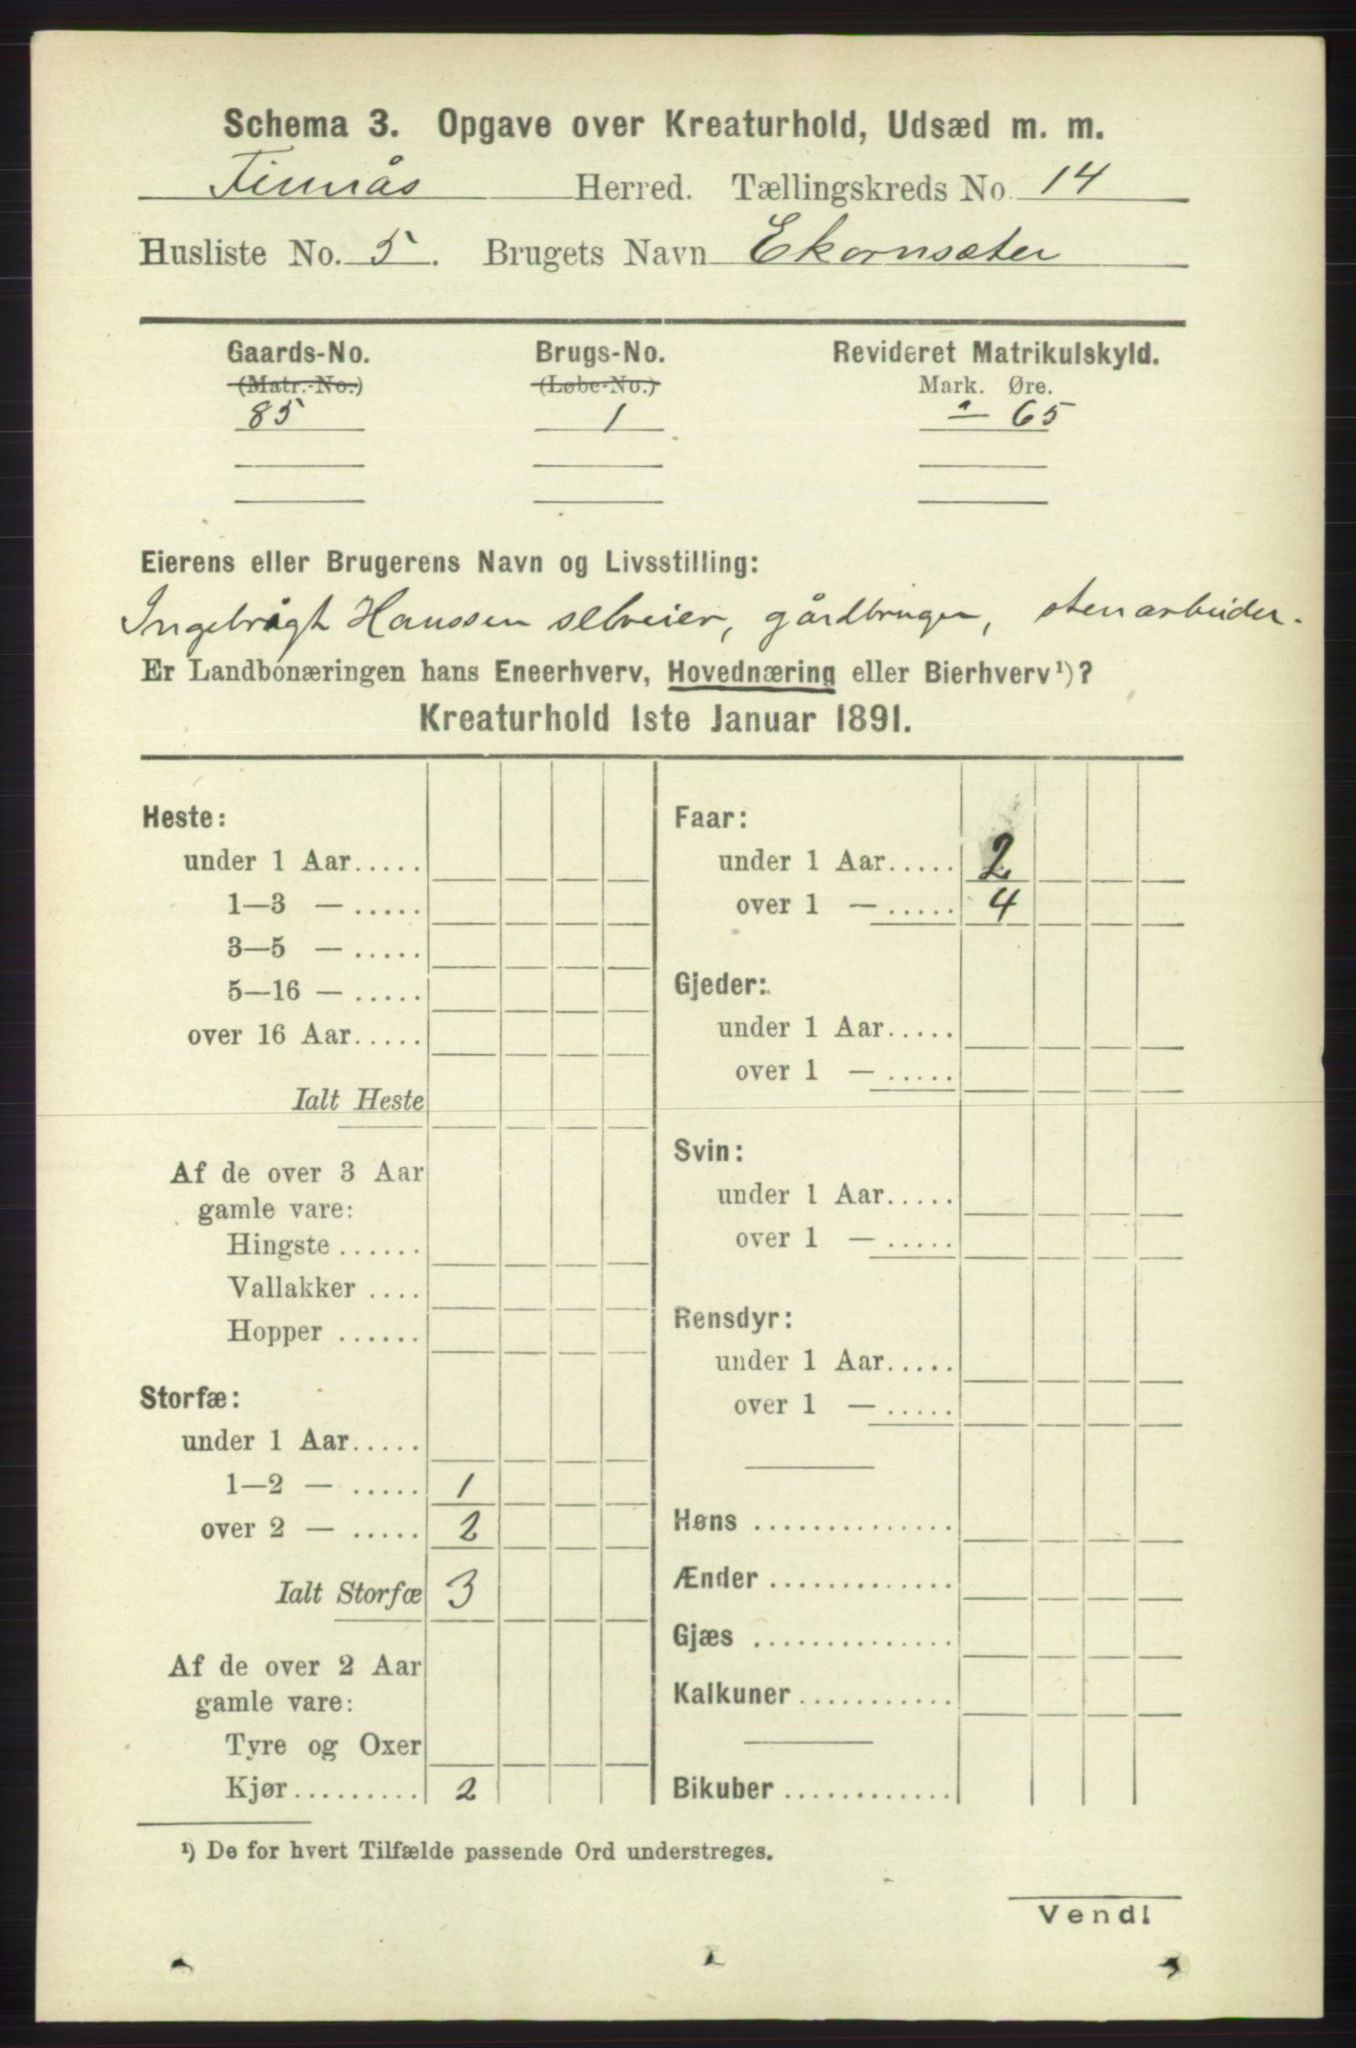 Schema 3. Opgave over Kreaturhold, Udsæd m. m.
Finnås Herred. Tællingskreds No. 14
Husliste No. 5. Brugets Navn Ekornsæter
Gaards-No. Brugs-No. Revideret Matrikulskyld.
(Matr.-No.) (Løbe-No.) Mark. Øre.
85 1 - 65
Eierens eller Brugerens Navn og Livsstilling:
Ingebrigt Hanssen selveier, gårdbruger, stenarbeider.
Er Landbonæringen hans Eneerhverv, Hovednæring eller Bierhverv¹)?
Kreaturhold 1ste Januar 1891.
Heste:
under 1 Aar.....
1—3 — .....
3—5 — .....
5—16 — .....
over 16 Aar.....
Ialt Heste
Af de over 3 Aar
gamle vare:
Hingste ......
Vallakker ....
Hopper ......
Storfæ:
under 1 Aar.....
1—2 — ..... 1
over 2 — ..... 2
Ialt Storfæ 3
Af de over 2 Aar
gamle vare:
Tyre og Oxer
Kjør......... 2
Faar:
under 1 Aar..... 2
over 1 — ..... 4
Gjeder:
under 1 Aar.....
over 1 — .....
Svin:
under 1 Aar.....
over 1 — .....
Rensdyr:
under 1 Aar.....
over 1 — .....
Høns ..............
Ænder .............
Gjæs ..............
Kalkuner...........
Bikuber ............
¹) De for hvert Tilfælde passende Ord understreges.
Vend!